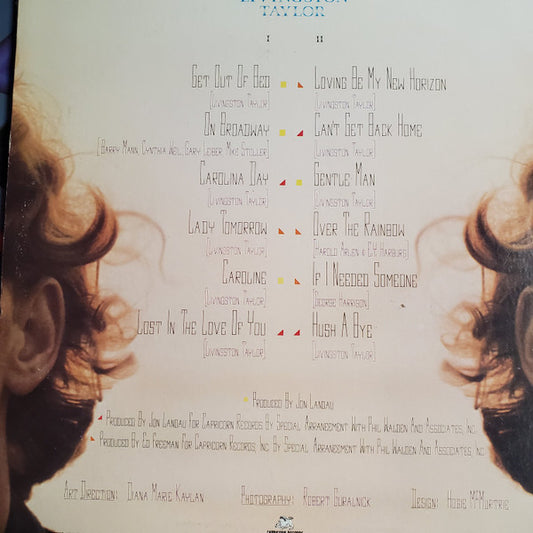 LIVINGSTON
TAYLOR
I II
Get Out Of Bed Loving Be My New Horizon
(Livingston Taylor) (Livingston Taylor)
On Broadway Can't Get Back Home
(Barry Mann, Cynthia Weil, Gary Leiber Mike Stoller) (Livingston Taylor)
Carolina Day Gentle Man
(Livingston Taylor) (Livingston Taylor)
Lady Tomorrow Over The Rainbow
(Livingston Taylor) (Harold Arlen & E.Y. Harburg)
Caroline If I Needed Someone
(Livingston Taylor) (George Harrison)
Lost In The Love Of You Hush A Bye
(Livingston Taylor) (Livingston Taylor)
Produced By Jon Landau
Produced By Jon Landau For Capricorn Records By Special Arrangement With Phil Walden And Associates, Inc.
Produced By Ed Freeman For Capricorn Records, Inc. By Special Arrangement With Phil Walden And Associates, Inc.
Art Direction: Diana Marie Kaylan Photography: Robert Guralnick Design: Hogie McMurtrie
CAPRICORN RECORDS